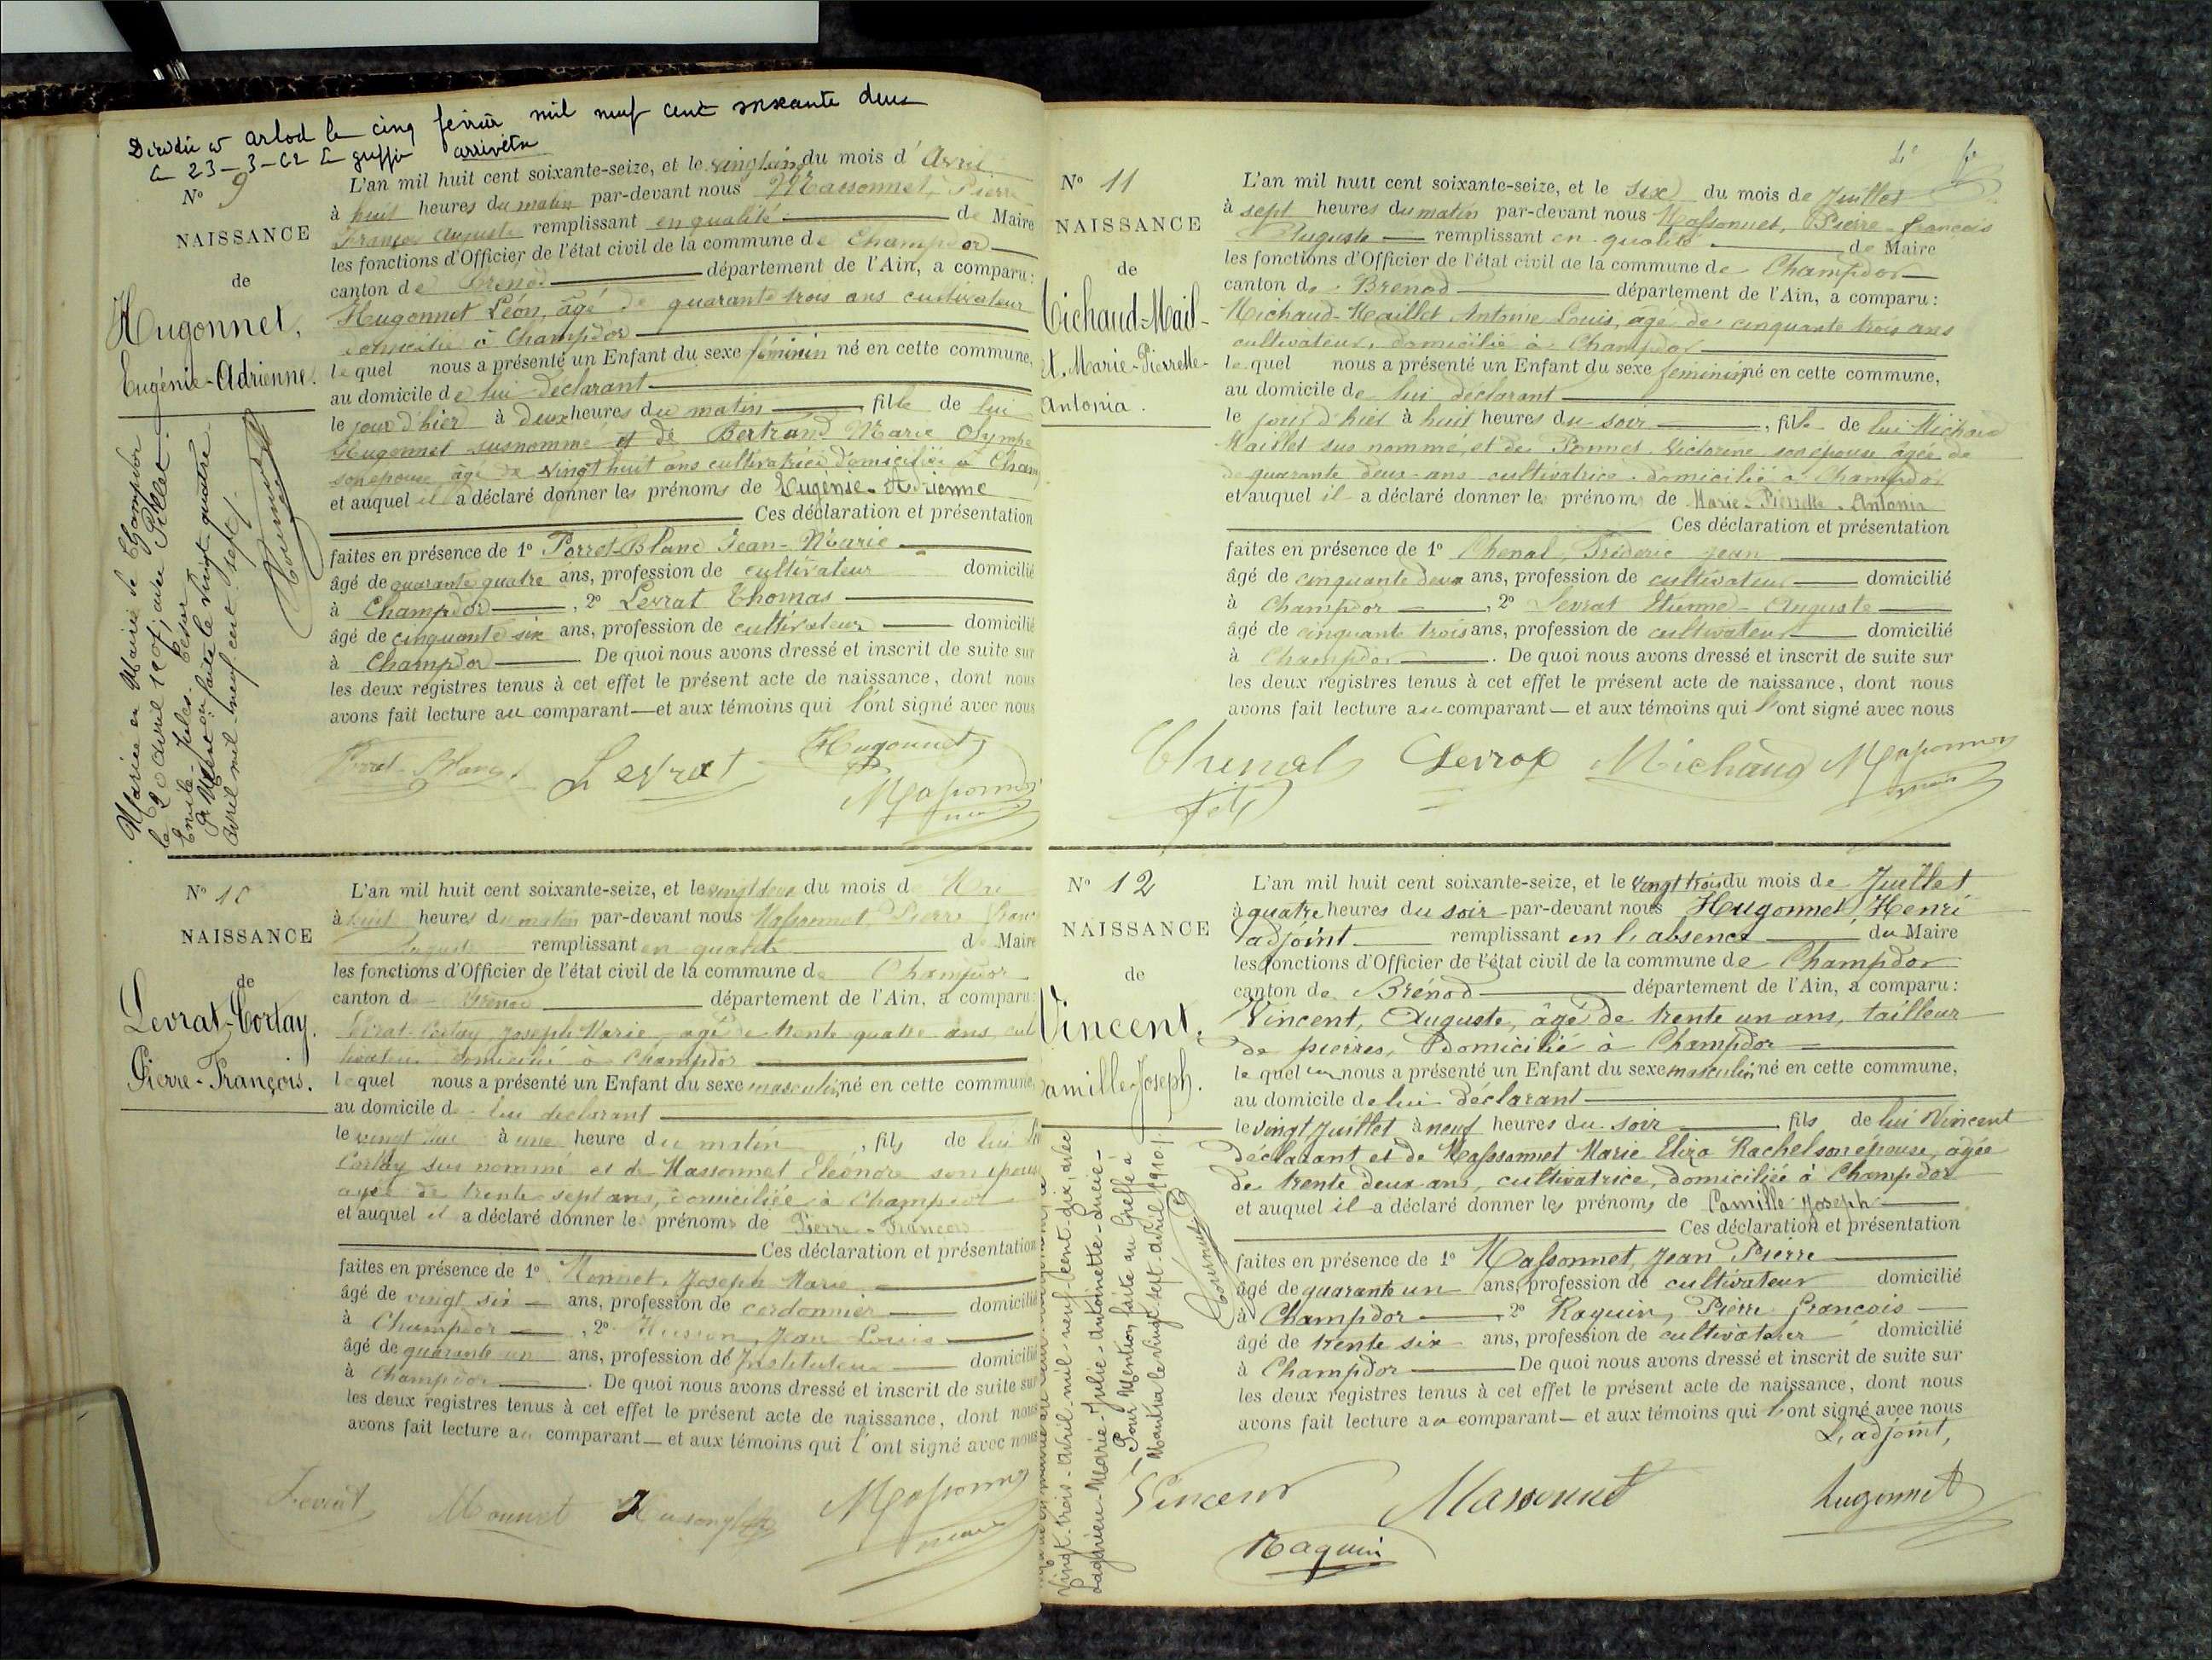 Décédée à arlod le cinq février mil neuf cent soixante deux
Le 23-3-62 Le greffier
N° 9
NAISSANCE
de
Hugonnet,
Eugénie-Adrienne.
Mariée en Mairie de Champdor
le 20 avril 1907, avec Pillet
Emile-Jules-César
Pr Mention faite le vingt quatre
avril mil neuf cent sept /.
L'an mil huit cent soixante-seize, et le du mois d'Avril
à huit heures du matin par-devant nous Massonnet, Pierre
François Auguste remplissant en qualité de Maire
les fonctions d'Officier de l'état civil de la commune de Champdor
canton de Brénod département de l'Ain, a comparu:
Hugonnet Léon, âgé de quarante trois ans cultivateur
domicilié à Champdor
lequel nous a présenté un Enfant du sexe féminin né en cette commune,
au domicile de lui déclarant
le jour d'hier à deux heures du matin, fille de lui
Hugonnet susnommé et de Bertrand Marie Olympe
son épouse, âgé de vingt huit ans cultivatrice domiciliée à Champ
et auquel il a déclaré donner les prénoms de Eugénie-Adrienne
Ces déclaration et présentation
faites en présence de 1° Porret-Blanc Jean-Marie
âgé de quarante quatre ans, profession de cultivateur domicilié
à Champdor, 2° Levrat Thomas
âgé de cinquante six ans, profession de cultivateur domicilié
à Champdor. De quoi nous avons dressé et inscrit de suite sur
les deux registres tenus à cet effet le présent acte de naissance, dont nous
avons fait lecture au comparant et aux témoins qui l'ont signé avec nous
Porret-Blanc Levrat Hugonnet
Massonnet
maire
N° 10
NAISSANCE
de
Levrat-Cortay.
Pierre-François.
L'an mil huit cent soixante-seize, et le vingt deux du mois de
à huit heures du matin par-devant nous Massonnet Pierre Franç
Auguste remplissant en qualité de Maire
les fonctions d'Officier de l'état civil de la commune de Champdor
canton de Brénod département de l'Ain, a comparu:
Levrat-Cortay Joseph Marie, âgé de trente quatre ans, cul
tivateur domicilié à Champdor
lequel nous a présenté un Enfant du sexe masculin né en cette commune,
au domicile de lui déclarant
le vingt à une heure du matin, fils de lui
Cortay sus nommé et de Massonnet Eléonore son épouse
âgée de trente sept ans, domiciliée à Champdor
et auquel il a déclaré donner les prénoms de Pierre-François
Ces déclaration et présentation
faites en présence de 1° Monnet, Joseph Marie
âgé de vingt six ans, profession de cordonnier domicilié
à Champdor, 2° Husson, Jean Louis
âgé de quarante un ans, profession de Instituteur domicilié
à Champdor. De quoi nous avons dressé et inscrit de suite sur
les deux registres tenus à cet effet le présent acte de naissance, dont nous
avons fait lecture au comparant et aux témoins qui l'ont signé avec nous
Levrat Monnet Husson Massonnet
maire
N° 11
NAISSANCE
de
Michaud-Mail-
et, Marie-Pierrette-
Antonia.
L'an mil huit cent soixante-seize, et le six du mois de Juillet
à sept heures du matin par-devant nous Massonnet, Pierre-François
Auguste remplissant en qualité de Maire
les fonctions d'Officier de l'état civil de la commune de Champdor
canton de Brenod département de l'Ain, a comparu:
Michaud-Maillet Antoine Louis, agé de cinquante trois ans
cultivateur, domicilié à Champdor
lequel nous a présenté un Enfant du sexe feminin né en cette commune,
au domicile de lui déclarant
le jour d'hier à huit heures du soir, fille de lui Michaud
Maillet sus nommé, et de Victorine son épouse âgée de
de quarante deux ans cultivatrice domicilié à Champdor
et auquel il a déclaré donner les prénoms de Marie-Pierrette-Antonia
Ces déclaration et présentation
faites en présence de 1° Chenal, Fréderic Jean
âgé de cinquante deux ans, profession de cultivateur domicilié
à Champdor, 2° Levrat Etienne-Auguste
âgé de cinquante trois ans, profession de cultivateur domicilié
à Champdor. De quoi nous avons dressé et inscrit de suite sur
les deux registres tenus à cet effet le présent acte de naissance, dont nous
avons fait lecture au comparant et aux témoins qui l'ont signé avec nous
Chenal Levrat Michaud Massonnet
maire
N° 12
NAISSANCE
de
Vincent,
Camille-Joseph.
vingt-trois-Avril-mil-neuf-cent-dix, avec
Lagnieu-Marie-Julie-Antoinette-Lucie-
Pour Mention faite au Greffe à
Nantua le vingt sept avril 1910 /.
L'an mil huit cent soixante-seize, et le vingt trois du mois de Juillet
à quatre heures du soir par-devant nous Hugonnet, Henri
adjoint remplissant en l'absence du Maire
les fonctions d'Officier de l'état civil de la commune de Champdor
canton de Brénod département de l'Ain, a comparu:
Vincent, Auguste, âgé de trente un ans, tailleur
de pierres, domicilié à Champdor
le quel nous a présenté un Enfant du sexe masculin né en cette commune,
au domicile de lui déclarant
le vingt juillet à neuf heures du soir, fils de lui Vincent
déclarant et de Massonnet Marie Eliza Rachel son épouse, âgée
de trente deux ans, cultivatrice, domiciliée à Champdor
et auquel il a déclaré donner les prénoms de Camille-Joseph
Ces déclaration et présentation
faites en présence de 1° Massonnet, Jean Pierre
âgé de quarante un ans, profession de cultivateur domicilié
à Champdor 2° Raquin, Pierre François
âgé de trente six ans, profession de cultivateur domicilié
à Champdor De quoi nous avons dressé et inscrit de suite sur
les deux registres tenus à cet effet le présent acte de naissance, dont nous
avons fait lecture au comparant et aux témoins qui l'ont signé avec nous
L'adjoint,
Vincent Massonnet hugonnet
Raquin